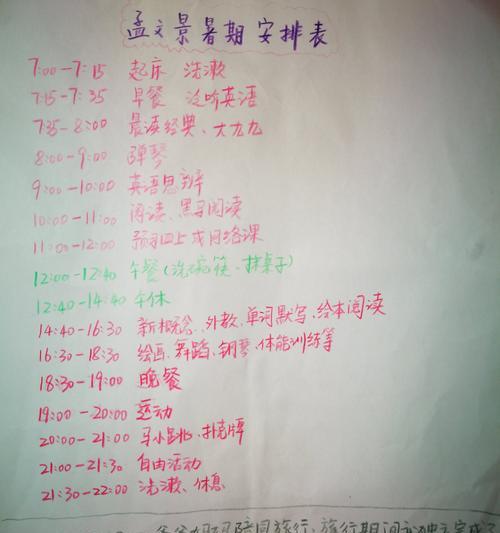 孟文景暑期安排表
7:00-7:15 起床 洗漱
7:15-7:35 早餐 泛听英语
7:35-8:00 晨读经典、大九九
8:00-9:00 弹琴
9:00-10:00 英语思辨
10:00-11:00 阅读、黑马阅读
11:00-12:00 预习四上或网络课
12:00-12:40 午餐(洗碗筷、抹桌子)
12:40-14:40 午休
14:40-16:30 新概念、外教、单词默写、绘本阅读
16:30-18:30 绘画、舞蹈、钢琴、体能训练等
18:30-19:00 晚餐
19:00-20:00 运动
20:00-21:00 马小跳、扑克牌
21:00-21:30 自由活动
21:30-22:00 洗漱、休息
陪同旅行,旅行期间